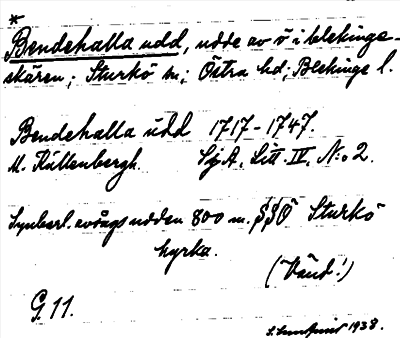 *
Bendehalla udd, udde av ö i blekinge-
skären; Sturkö sn; Östra hd; Blekinge l.
Bendehalla udd 1717-1747.
M. Källenbergh. Sj.A. Litt. IV. N:o 2.
Synbarl. avsågs udden 800 m. SSÖ Sturkö
kyrka.
(Vänd!)
G 11.
1938.